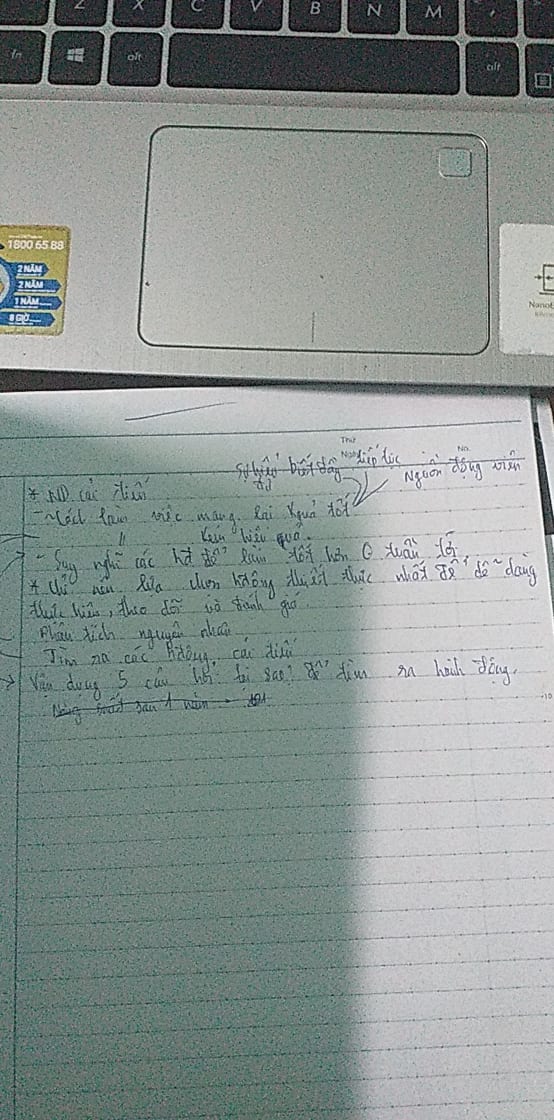 Z X C V B N M ,
fn alt alt
1800 65 88
2 NĂM
2 NĂM
1 NĂM
8 GIỜ
Thứ
Ngày No.
biết đầy tiếp tục Nguồn động viên
* ND cải tiến
- Cách làm việc mang lại kquả tốt
" kém hiệu quả.
- Suy nghĩ các hđ để làm tốt hơn tuần tới
* Chỉ nên lựa chọn hđộng thiết thực nhất để dễ dàng
thực hiện, theo dõi và đánh giá.
Phân tích nguyên nhân
Tìm ra các hđộng cải tiến
→ Vận dụng 5 câu hỏi tại sao? để tìm ra hành động.
sau 1 năm
10